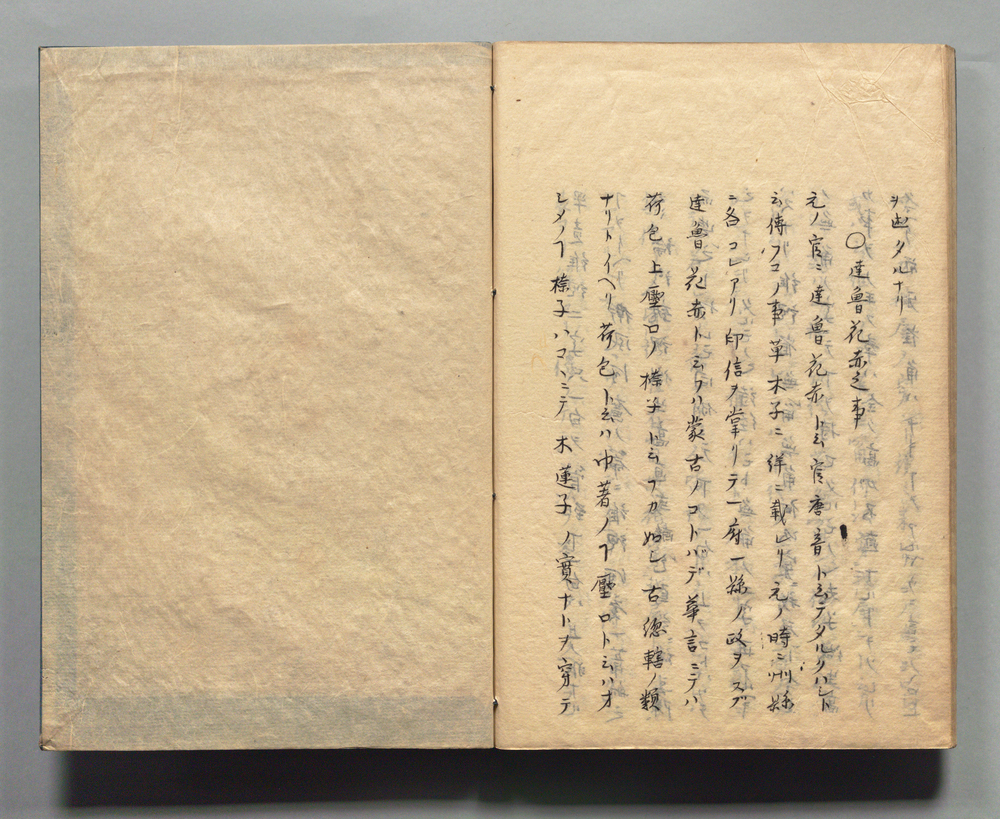 ヲ出タルナリ
〇達魯花赤之事
元ノ官ニ達魯花赤ト云官唐音ト云テタルクハシト
云傳フコノ事草木子ニ詳ニ載セリ元ノ時ニ州縣
ニ各コレアリ印信ヲ掌リテ一府一縣ノ政ヲスブ
達魯花赤ト云フハ蒙古ノコトバデ華言ニテハ
荷包上壓口ノ捺子ト云フカ如シ古總轄ノ類
ナリトイヘリ荷包ト云ハ巾著ノヿ壓口ト云ハオ
シメノヿ捺子ハコヽニテ木蓮子ノ實ナトヲ穿テ